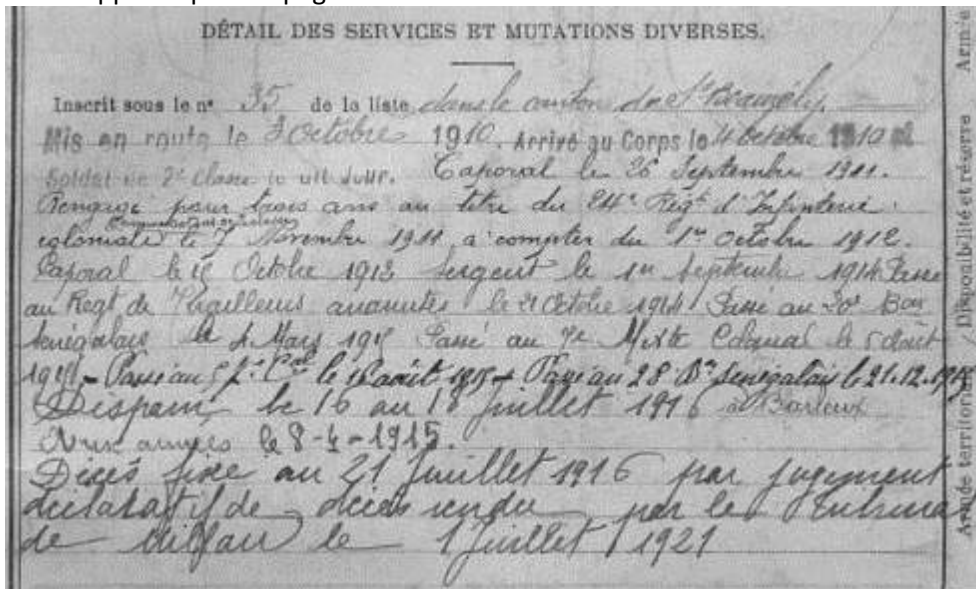 DÉTAIL DES SERVICES ET MUTATIONS DIVERSES.
Inscrit sous le n° 35 de la liste dans le canton de St Beauzély
Mis en route le 3 octobre 1910. Arrivé au Corps le 4 octobre 1910
Soldat de 2e classe le dit jour. Caporal le 26 Septembre 1911.
Rengagé pour trois ans au titre du 24e Régt d'Infanterie
coloniale le 7 Novembre 1911, à compter du 1er octobre 1912.
Caporal le 15 Octobre 1913 Sergent le 1er Septembre 1914 Passé
au Régt de Tirailleurs le 21 Octobre 1914 Passé au 30e Bon
Sénégalais le 4 Mars 1915 Passé au 7e Mixte Colonial le 5 août
1915 - Passé au le 16 août 1915 - Passé au 28 Bn Sénégalais le 21.12.1915
Disparu le 16 au 18 Juillet 1916 à Barleux
Aux armées le 8-4-1915.
Décès fixé au 21 Juillet 1916 par jugement
déclaratif de décès rendu par le Tribunal
de Millau le 1 Juillet 1921
Disponibilité et réserve
Armée territoriale
Armée